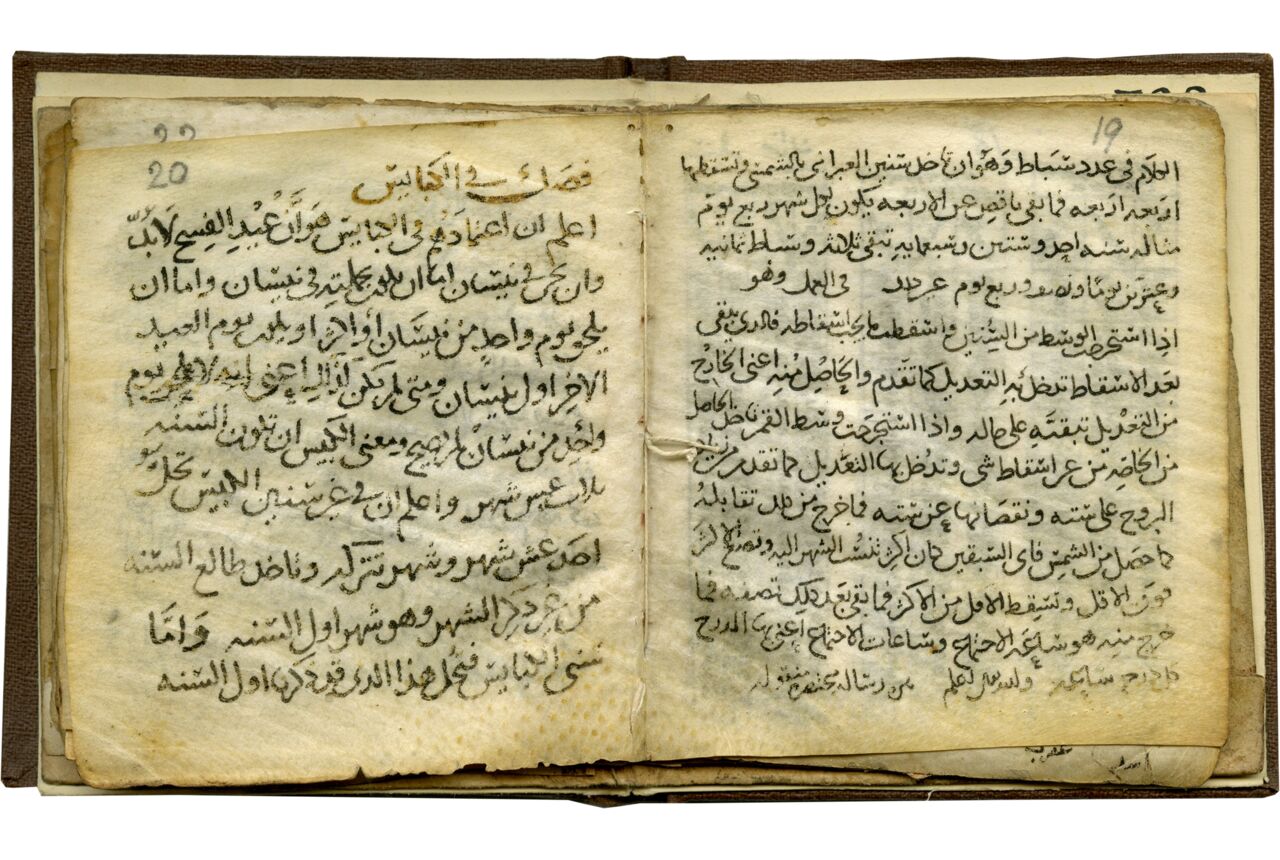 19
الكلام فى عدد شباط وهو ان تاخد سنين العبرانى بالشمسى وتسقطها
اربعه اربعه فما بقى ناقص عن الاربعه يكون لكل شهر ربع يوم
مثاله سنه احد وستين وسبعمايه تبقى ثلاثه وشباط ثمانيه
وعشرين يوما ونصف وربع يوم فى العمل وهو
اذا استخرجت الوسط من السنين واسقطت ما يجب اسقاطه فالدى يبقى
بعد الاسقاط تدخل به التعديل كما تقدم والحاصل منه اعنى الخارج
من التعديل تبقيه على حاله واذا استخرجت وسط القمر تاخد الحاصل
من الخاصه من غير اسقاط شى وتدخل بها التعديل كما تقدم من
البروج على سته ونقصانها عن سته فاخرج من تقابله
كما حصل من الشمس فاى السبقين كان اكثر تنسب الشهر اليه
فوق الاقل وتسقط الاقل من الاكثر فما بقى بعد دلك نصفه فما
خرج منه هو ساعه الاجتماع وساعات الاجتماع اعنى بها الدرج
كل درج ساعه والله اعلم من رساله مختصره منقوله
22
20
فصل فى الكبايس
اعلم ان اعتمادهم فى الكبايس هو ان عيد الفسح لابد
وان يحى فى نيسان اما ان يكون بجملته فى نيسان واما ان
يلحق يوم واحد من نيسان أولا او يكون يوم العيد
الاخر اول نيسان ومتى لم يكن كدالك اعنى انه لا يلحق يوم
واحد من نيسان لم يصح ومعنى الكبس ان تكون السنه
تلات عشر شهر واعلم ان فى غير سنين الكبيس تحل
احد عشر شهر وشهر تتركه وتاخد طالع السنه
من غير دكر الشهر وهو شهر اول السنه وامّا
سنى الكبايس فتحل هذا الدى قد دكرنا اول السنه